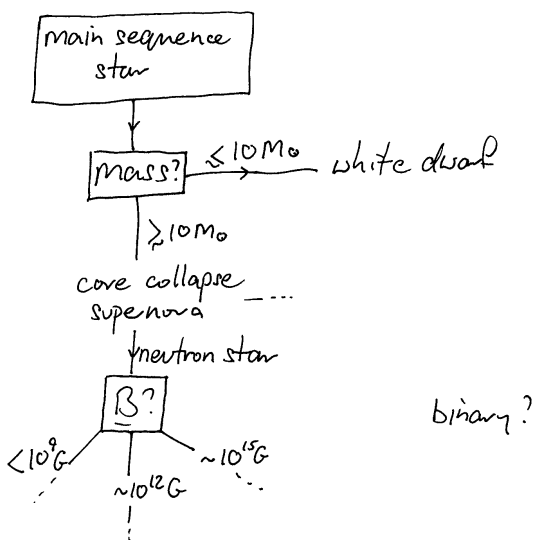 main sequence
star
Mass?
≲10M⊙
white dwarf
≳10M⊙
core collapse
supernova
neutron star
B?
<10⁹G
~10¹²G
~10¹⁵G
binary?